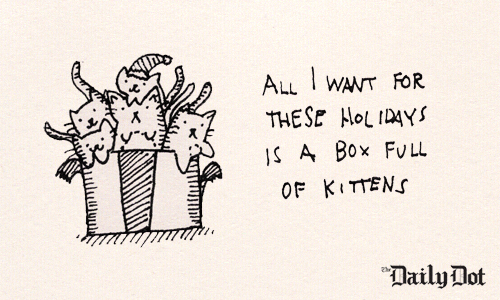 ALL I WANT FOR
THESE HOLIDAYS
IS A BOX FULL
OF KITTENS
The Daily Dot